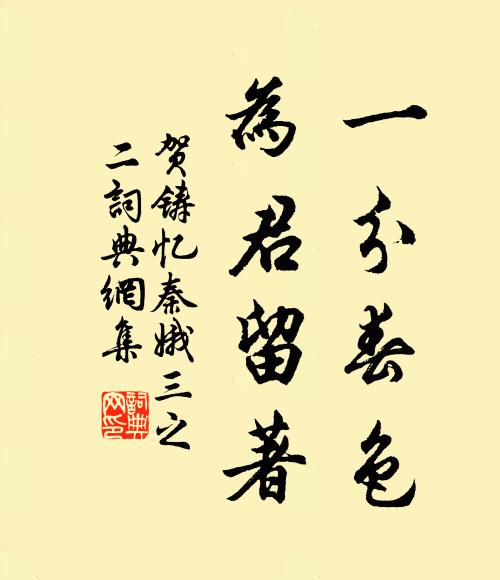 一分春色
為君留著
贺鑄忆秦娥三之
二詞典網集
詞典
网印